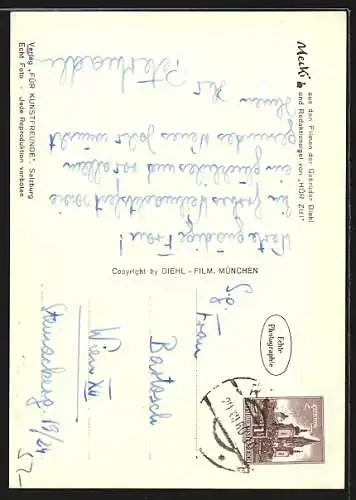 Mecki
aus den Filmen der Gebrüder Diehl
und Redaktionsigel von "HÖR ZU!"
Werte gnädige Frau!
Ein frohes Weihnachtsfest sowie
ein glückliches und vor allem
gesundes Neues Jahr wünscht
Ihnen Ihr
Verlag „FÜR KUNSTFREUNDE", Salzburg
Echt Foto - Jede Reproduktion verboten
Copyright by DIEHL - FILM, MÜNCHEN
Echte
Photographie
S.g.
Frau
Bartosch
Wien XII
52-